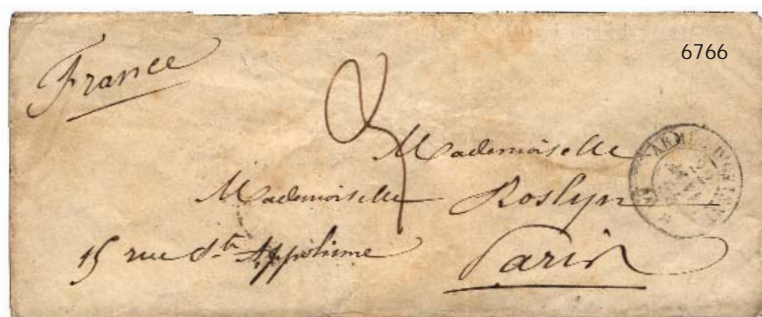 6766
France
3
Mademoiselle
Mademoiselle Roslyn
15 rue Ste Appolinne
Paris
ARMÉE D'ORIENT